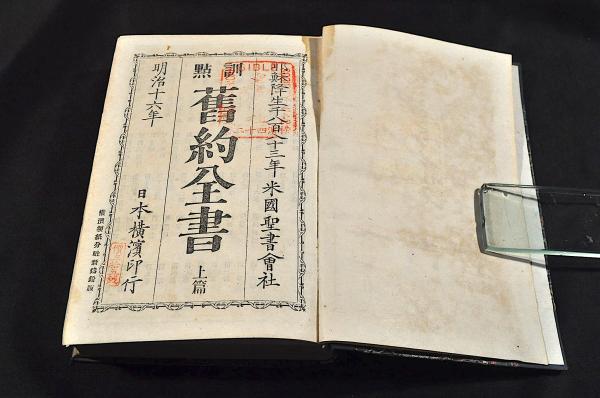 耶穌降生千八百八十三年 米國聖書會社
訓點 舊約全書 上篇
明治十六年 日本橫濱印行
BIBL